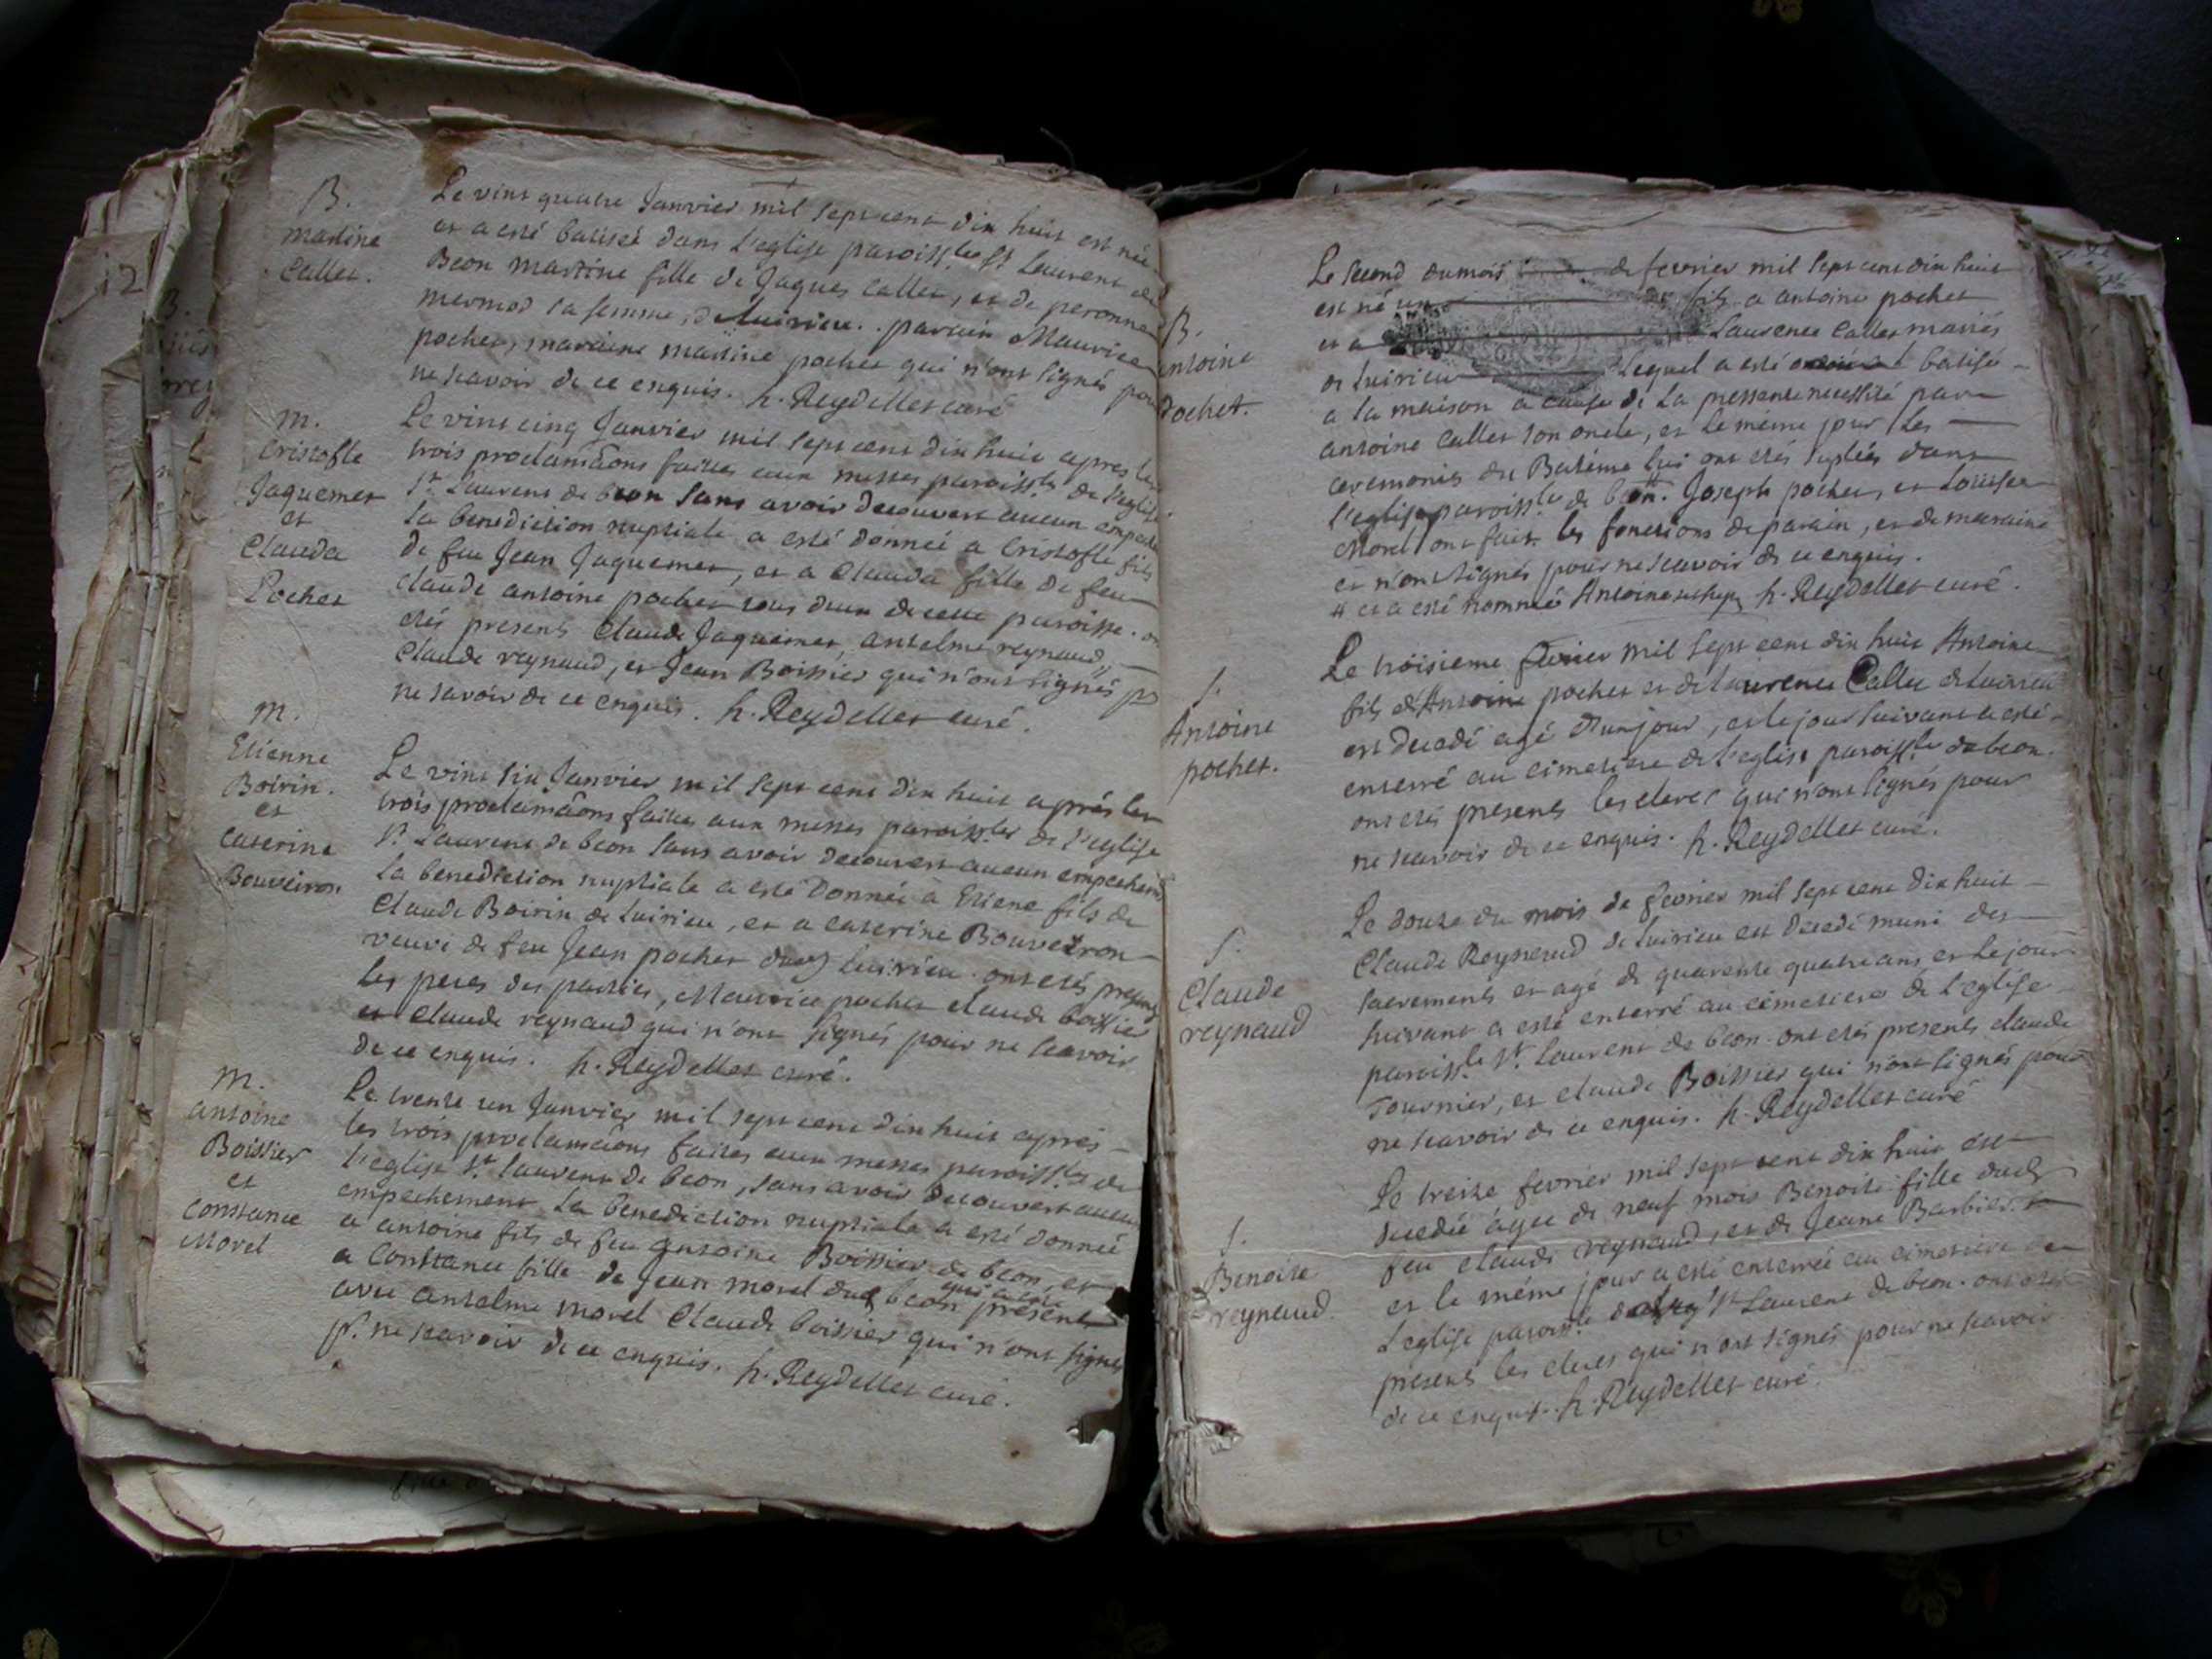 B.
martine
Callet.
Le vint quatre Janvier mil sept cent dix huit est née
et a esté batiseé dans l'eglise paroiss.le St Laurent de
Beon martine fille de Jaques callet, et de peronne
mermod sa femme, de luirieu. parain Maurice
pochet, maraine martine pochet qui n'ont signés pour
ne scavoir de ce enquis. h. Reydellet curé
m.
Cristofle
Jaquemet
et
Clauda
Pochet
Le vint cinq Janvier mil sept cent dix huit apres les
trois proclamaõns faites aux messes paroiss.les de l'eglise
St. Laurent de beon sans avoir decouvert aucun empeche
la benediction nuptiale a esté donneé a Cristofle fils
de feu Jean Jaquemet, et a Clauda fille de feu
claude antoine pochet tous deux de cette paroisse. on
etés presents Claude Jaquemet, antelme reynaud,
Claude reynaud, et Jean Boissier qui n'ont signés pr
ne savoir de ce enquis. h. Reydellet curé.
m.
Etienne
Boirin.
et
Caterine
Bouveiron
Le vint six Janvier mil sept cent dix huit aprés les
trois proclamaõns faites aux messes paroiss.les de l'eglise
St. Laurent de beon sans avoir decouvert aucun empechemt
la benediction nuptiale a esté donneé a Etiene fils de
Claude Boirin de luirieu, et a caterine Bouveiron
veuve de feu Jean pochet dud luirieu. ont etés presents
les peres des parties, Maurice pochet claude boissier
et Claude reynaud qui n'ont signés pour ne scavoir
de ce enquis. h. Reydellet curé.
m.
antoine
Boissier
et
constance
Morel
Le trente un Janvier mil sept cent dix huit aprés
les trois proclamaõns faites aux messes paroiss.les de
l'eglise St. laurent de beon, sans avoir decouvert aucun
empechement la benediction nuptiale a esté donneé
a antoine fils de feu antoine Boissier de beon, et
a Constance fille de Jean morel dud beon qui a esté present
avec antelme morel Claude boissier qui n'ont signés
pr. ne scavoir de ce enquis. h. Reydellet curé.
B.
antoine
Pochet.
Le second du mois de fevrier mil sept cent dix huit
est né un fils a antoine pochet
et a Laurence Callet mariés
de luirieu lequel a esté batisé
a la maison a cause de la pressente necessité par
antoine callet son oncle, et le méme jour les
ceremonies du Batéme lui ont etés supleés dans
l'eglise paroiss.le de beon. # Joseph pochet, et Louise
Morel ont fait les fonctions de parain, et de maraine
et n'ont signés pour ne scavoir de ce enquis.
# et a esté nommé Antoine h. Reydellet curé.
s.
Antoine
pochet.
Le troisieme fevrier mil sept cent dix huit Antoine
fils d'Antoine pochet et de laurence Callet de luirieu
est decedé agé d'un jour, et le jour suivant a esté
enterré au cimetiere de l'eglise paroiss.le de beon.
ont etés presents les clercs qui n'ont signés pour
ne scavoir de ce enquis. h. Reydellet curé.
s.
Claude
reynaud
Le douze du mois de fevrier mil sept cent dix huit
Claude Reynaud de luirieu est decedé muni des
sacrements et agé de quarente quatre ans, et le jour
suivant a esté enterré au cimetiere de l'eglise
paroiss.le St. Laurent de beon. ont etés presents claude
Tournier, et claude Boissier qui n'ont signés pour
ne scavoir de ce enquis. h. Reydellet curé
s.
Benoite
reynaud.
Le treize fevrier mil sept cent dix huit est
decedée ágée de neuf mois Benoite fille dud
feu claude reynaud, et de Jeane Barbier.
et le méme jour a esté enterreé au cimetiere de
L'eglise paroiss.le St Laurent de beon. ont etés
presents les clercs qui n'ont signés pour ne scavoir
de ce enquis. h. Reydellet curé.
12